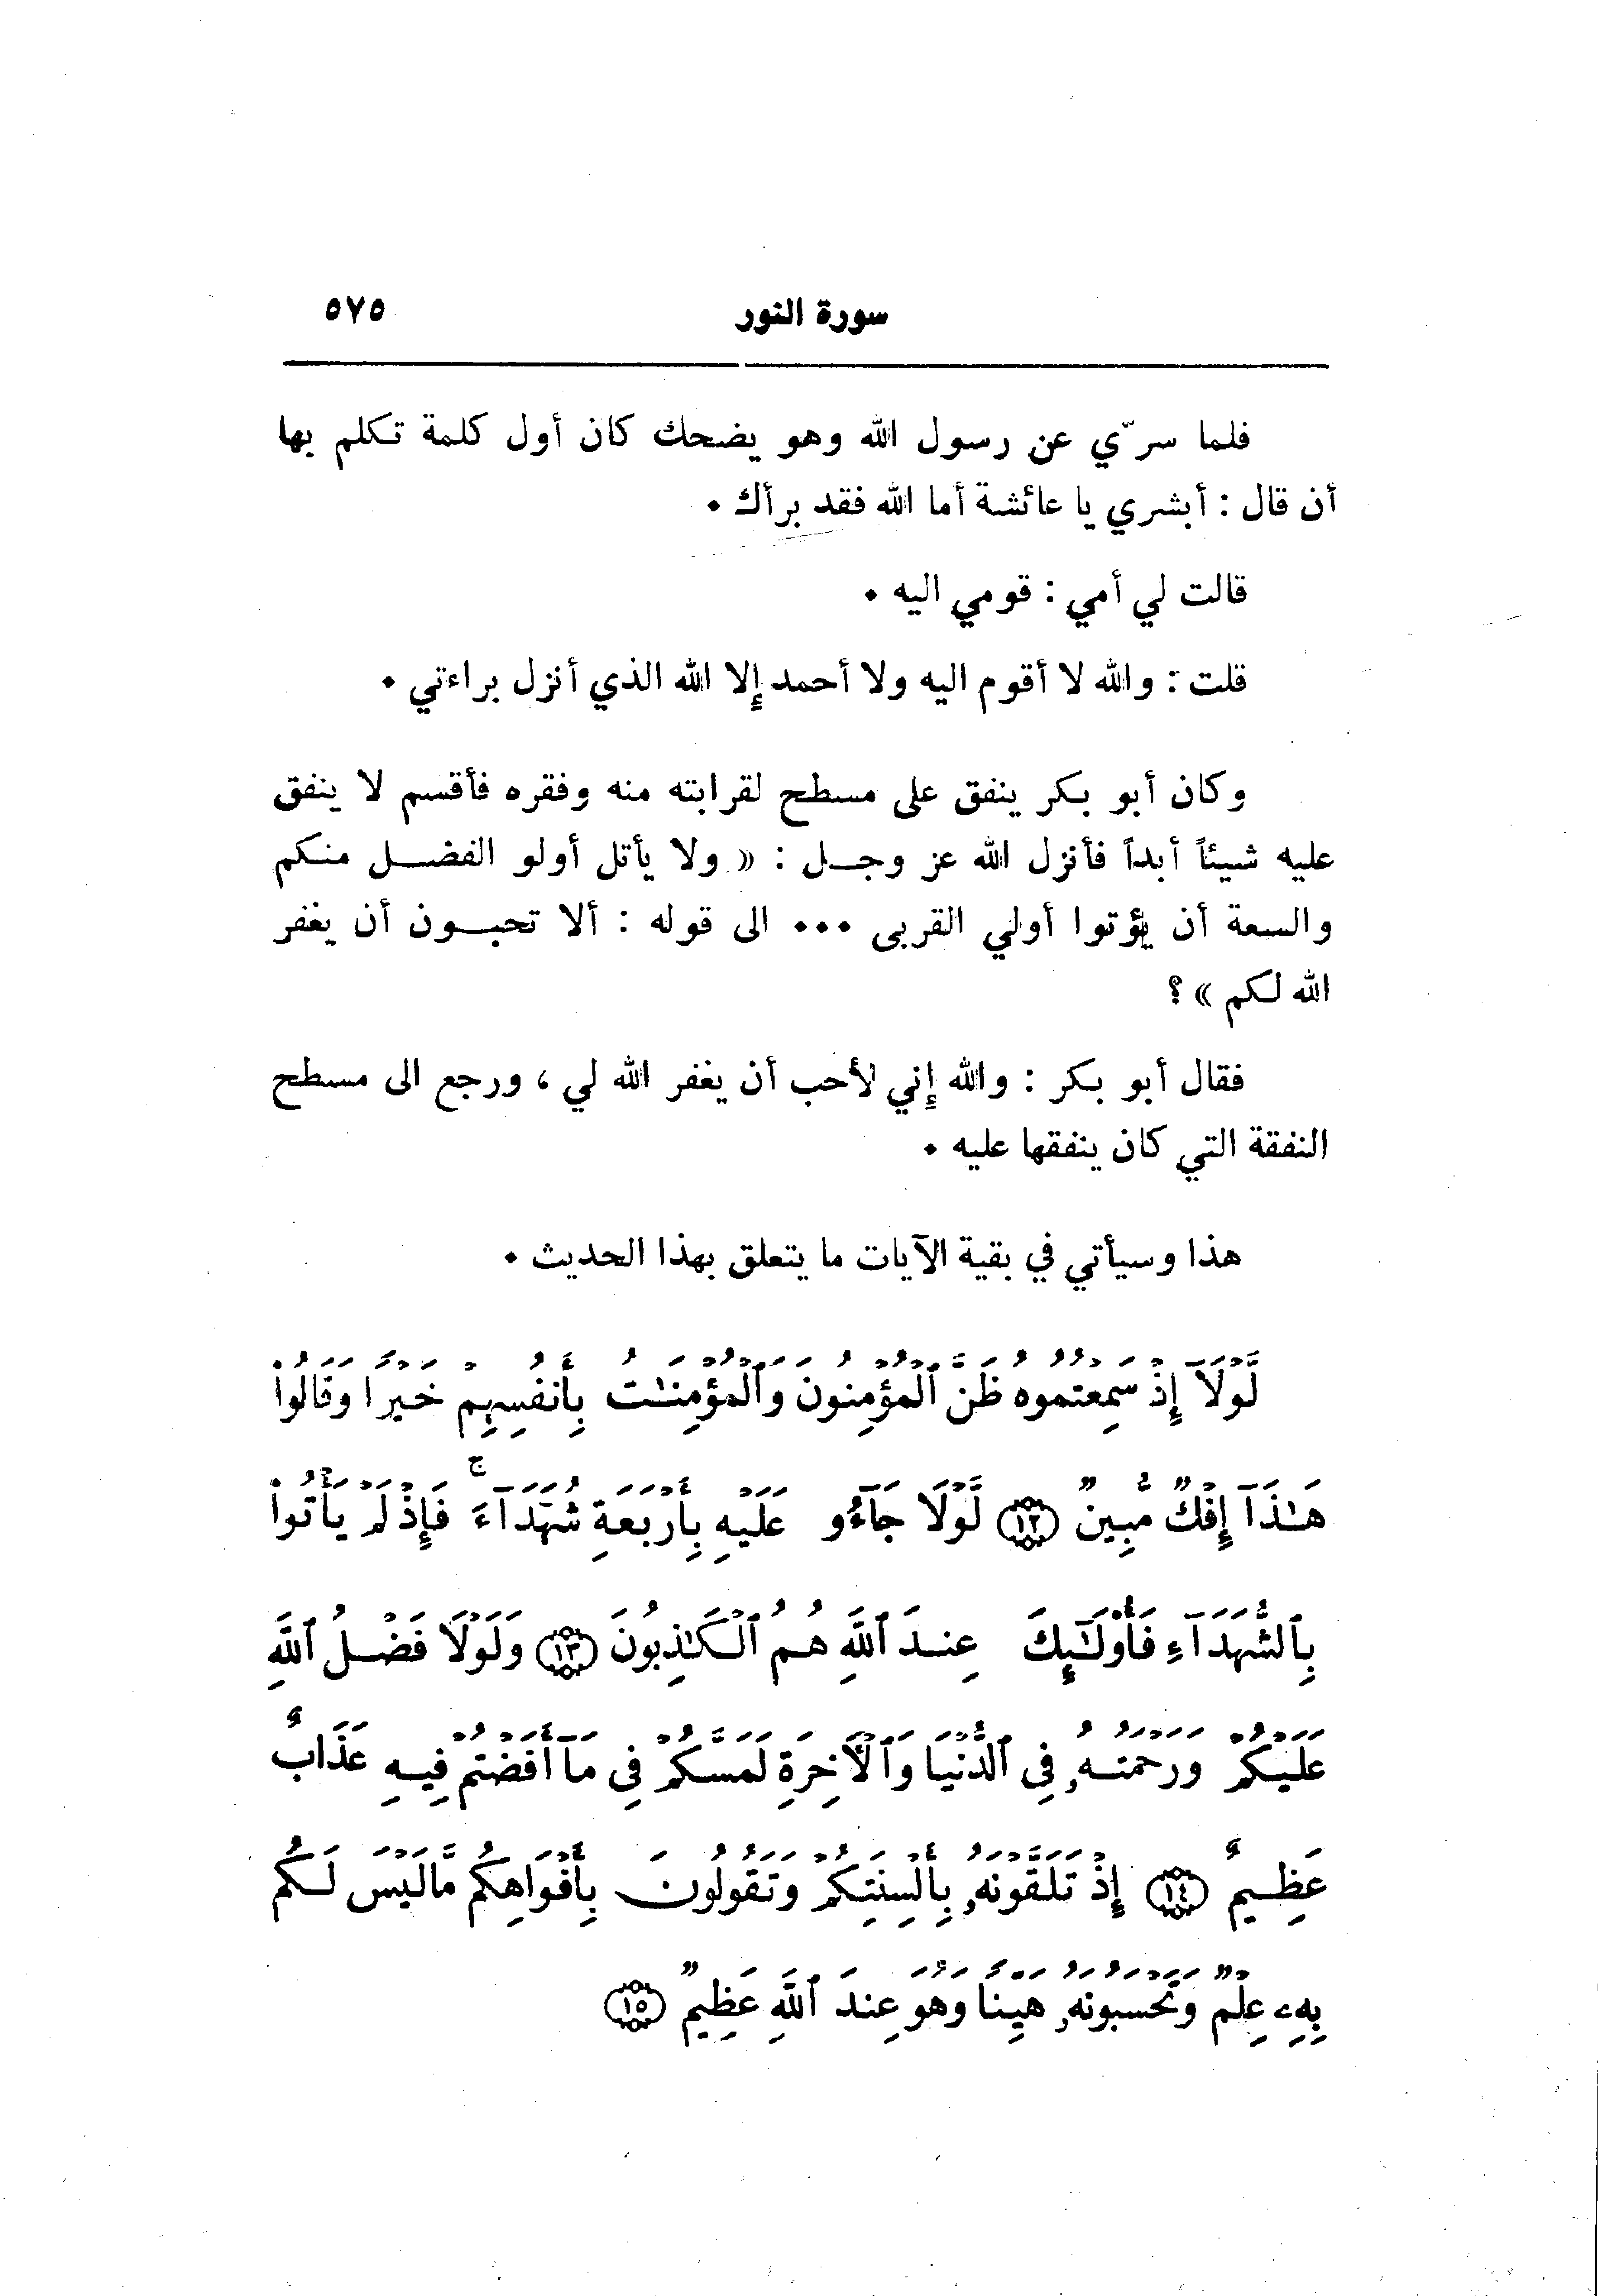 سورة النور ٥٧٥
فلما سرّي عن رسول الله وهو يضحك كان أول كلمة تكلم بها
أن قال : أبشري يا عائشة أما الله فقد برأك .
قالت لي أمي : قومي اليه .
قلت : والله لا أقوم اليه ولا أحمد إلا الله الذي أنزل براءتي .
وكان أبو بكر ينفق على مسطح لقرابته منه وفقره فأقسم لا ينفق
عليه شيئاً أبداً فأنزل الله عز وجل : « ولا يأتل أولو الفضل منكم
والسعة أن يؤتوا أولي القربى ... الى قوله : ألا تحبون أن يغفر
الله لكم » ؟
فقال أبو بكر : والله إني لأحب أن يغفر الله لي ، ورجع الى مسطح
النفقة التي كان ينفقها عليه .
هذا وسيأتي في بقية الآيات ما يتعلق بهذا الحديث .
لَّوْلَآ إِذْ سَمِعْتُمُوهُ ظَنَّ ٱلْمُؤْمِنُونَ وَٱلْمُؤْمِنَـٰتُ بِأَنفُسِهِمْ خَيْرًا وَقَالُوا۟
هَـٰذَآ إِفْكٌ مُّبِينٌ ﴿١٢﴾ لَّوْلَا جَآءُو عَلَيْهِ بِأَرْبَعَةِ شُهَدَآءَ ۚ فَإِذْ لَمْ يَأْتُوا۟
بِٱلشُّهَدَآءِ فَأُو۟لَـٰٓئِكَ عِندَ ٱللَّهِ هُمُ ٱلْكَـٰذِبُونَ ﴿١٣﴾ وَلَوْلَا فَضْلُ ٱللَّهِ
عَلَيْكُمْ وَرَحْمَتُهُۥ فِى ٱلدُّنْيَا وَٱلْأَخِرَةِ لَمَسَّكُمْ فِى مَآ أَفَضْتُمْ فِيهِ عَذَابٌ
عَظِيمٌ ﴿١٤﴾ إِذْ تَلَقَّوْنَهُۥ بِأَلْسِنَتِكُمْ وَتَقُولُونَ بِأَفْوَاهِكُم مَّا لَيْسَ لَكُم
بِهِۦ عِلْمٌ وَتَحْسَبُونَهُۥ هَيِّنًا وَهُوَ عِندَ ٱللَّهِ عَظِيمٌ ﴿١٥﴾